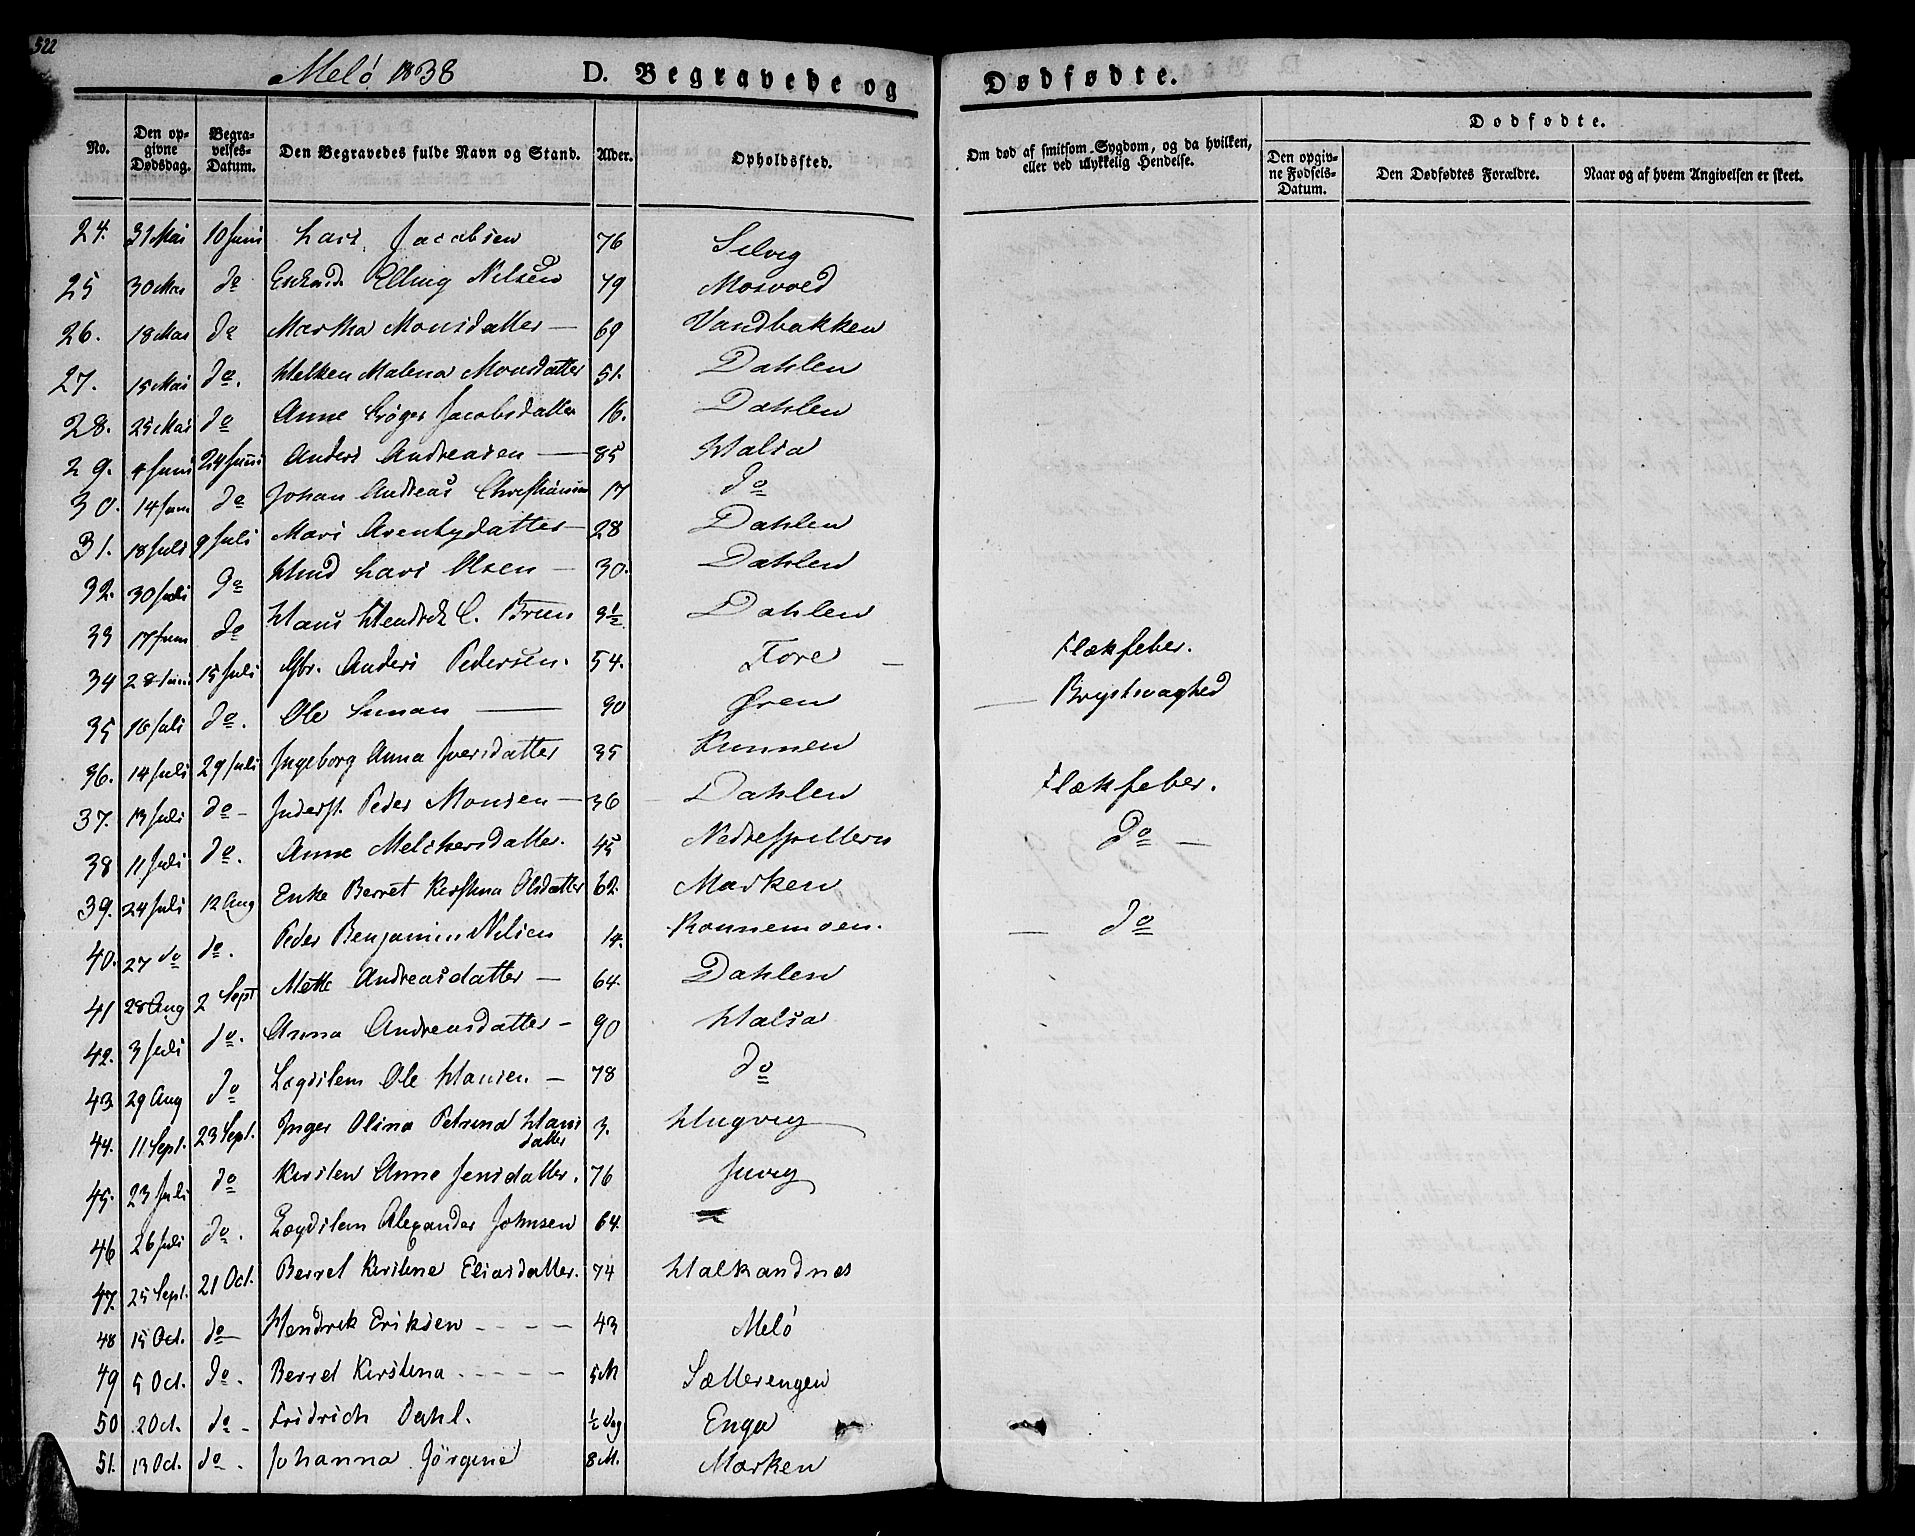 522
Melö 1838 D. Begravede og Dødfødte.
No. Den opgivne Dødsdag. Begravelses-Datum. Den Begravedes fulde Navn og Stand. Alder. Opholdssted. Om død af smitsom Sygdom, og da hvilken, eller ved ulykkelig Hendelse. Dødfødte. Den opgivne Fødsels-Datum. Den Dødfødtes Forældre. Naar og af hvem Angivelsen er skeet.
24. 31 Mai 10 Juni Lars Jacobsen 76 Selvig
25 30 Mai do Elling Nilsen 79 Mosvold
26. 18 Mai do Martha Monsdatter — 69 Vandbakken
27. 15 Mai do. Helken Malena Monsdatter 51. Dahlen
28. 25 Mai do Anne Jacobsdatter 16. Dahlen
29. 4 Juni 24 Juni Anders Andreasen — 85 Halsa
30. 14 Juni do Johan Andreas Christiansen 17 do
31. 18 Juli 9 Juli Mari Arentzdatter — 28 Dahlen
32. 30 Juli do Hmd Lars Olsen — 30. Dahlen
33 17 Juni do Hans Hendrik C. Bruun 3½ Dahlen
34 28 Juni 15 Juli Gbr. Anders Pedersen. 54. Fore — Flækfeber.
35 16 Juli do. Ole Simon — 90 Øren — Brystsvaghed
36. 14 Juli 29 Juli Ingeborg Anna Iversdatter 35 Kunnen
37. 13 Juli do — Inderst. Peder Monsen — 36 Dahlen Flækfeber.
38 11 Juli do. Anne Melchersdatter. 45 Nedre Spilderen do —
39. 24 Juli 12 Aug Enke Berret Kirstina Olsdatter 62. Marken
40. 27 do do. Peder Benjamin Nilsen 14. Konnemoen. — do
41 28 Aug 2 Sept Mette Andreasdatter — 64. Dahlen
42. 3 Juli do. Anna Andreasdatter — 90 Halsa
43 29 Aug do Lægdslem Ole Hansen — 78 do
44. 11 Sept. 23 Sept. Inger Olina Petrina Hansdatter 3. Hugvig
45. 23 Juli do Kirsten Anne Jensdatter. 76 Juvig
46 26 Juli do. Lægdslem Alexander Johnsen 64.
47. 25 Sept. 21 Oct. Berret Kirstene Eliasdatter. 74 Halkandnes
48 15 Oct. do — Hendrik Eriksen - - - - 43 Melö
49 5 Oct. do. Berret Kirstina - - - - - 5 M Sætterengen
50 2 Oct. do - Fridrich Dahl. ½ Dag Enga
51. 13 Oct. do. Johanna Jörgine 8 M. Marken